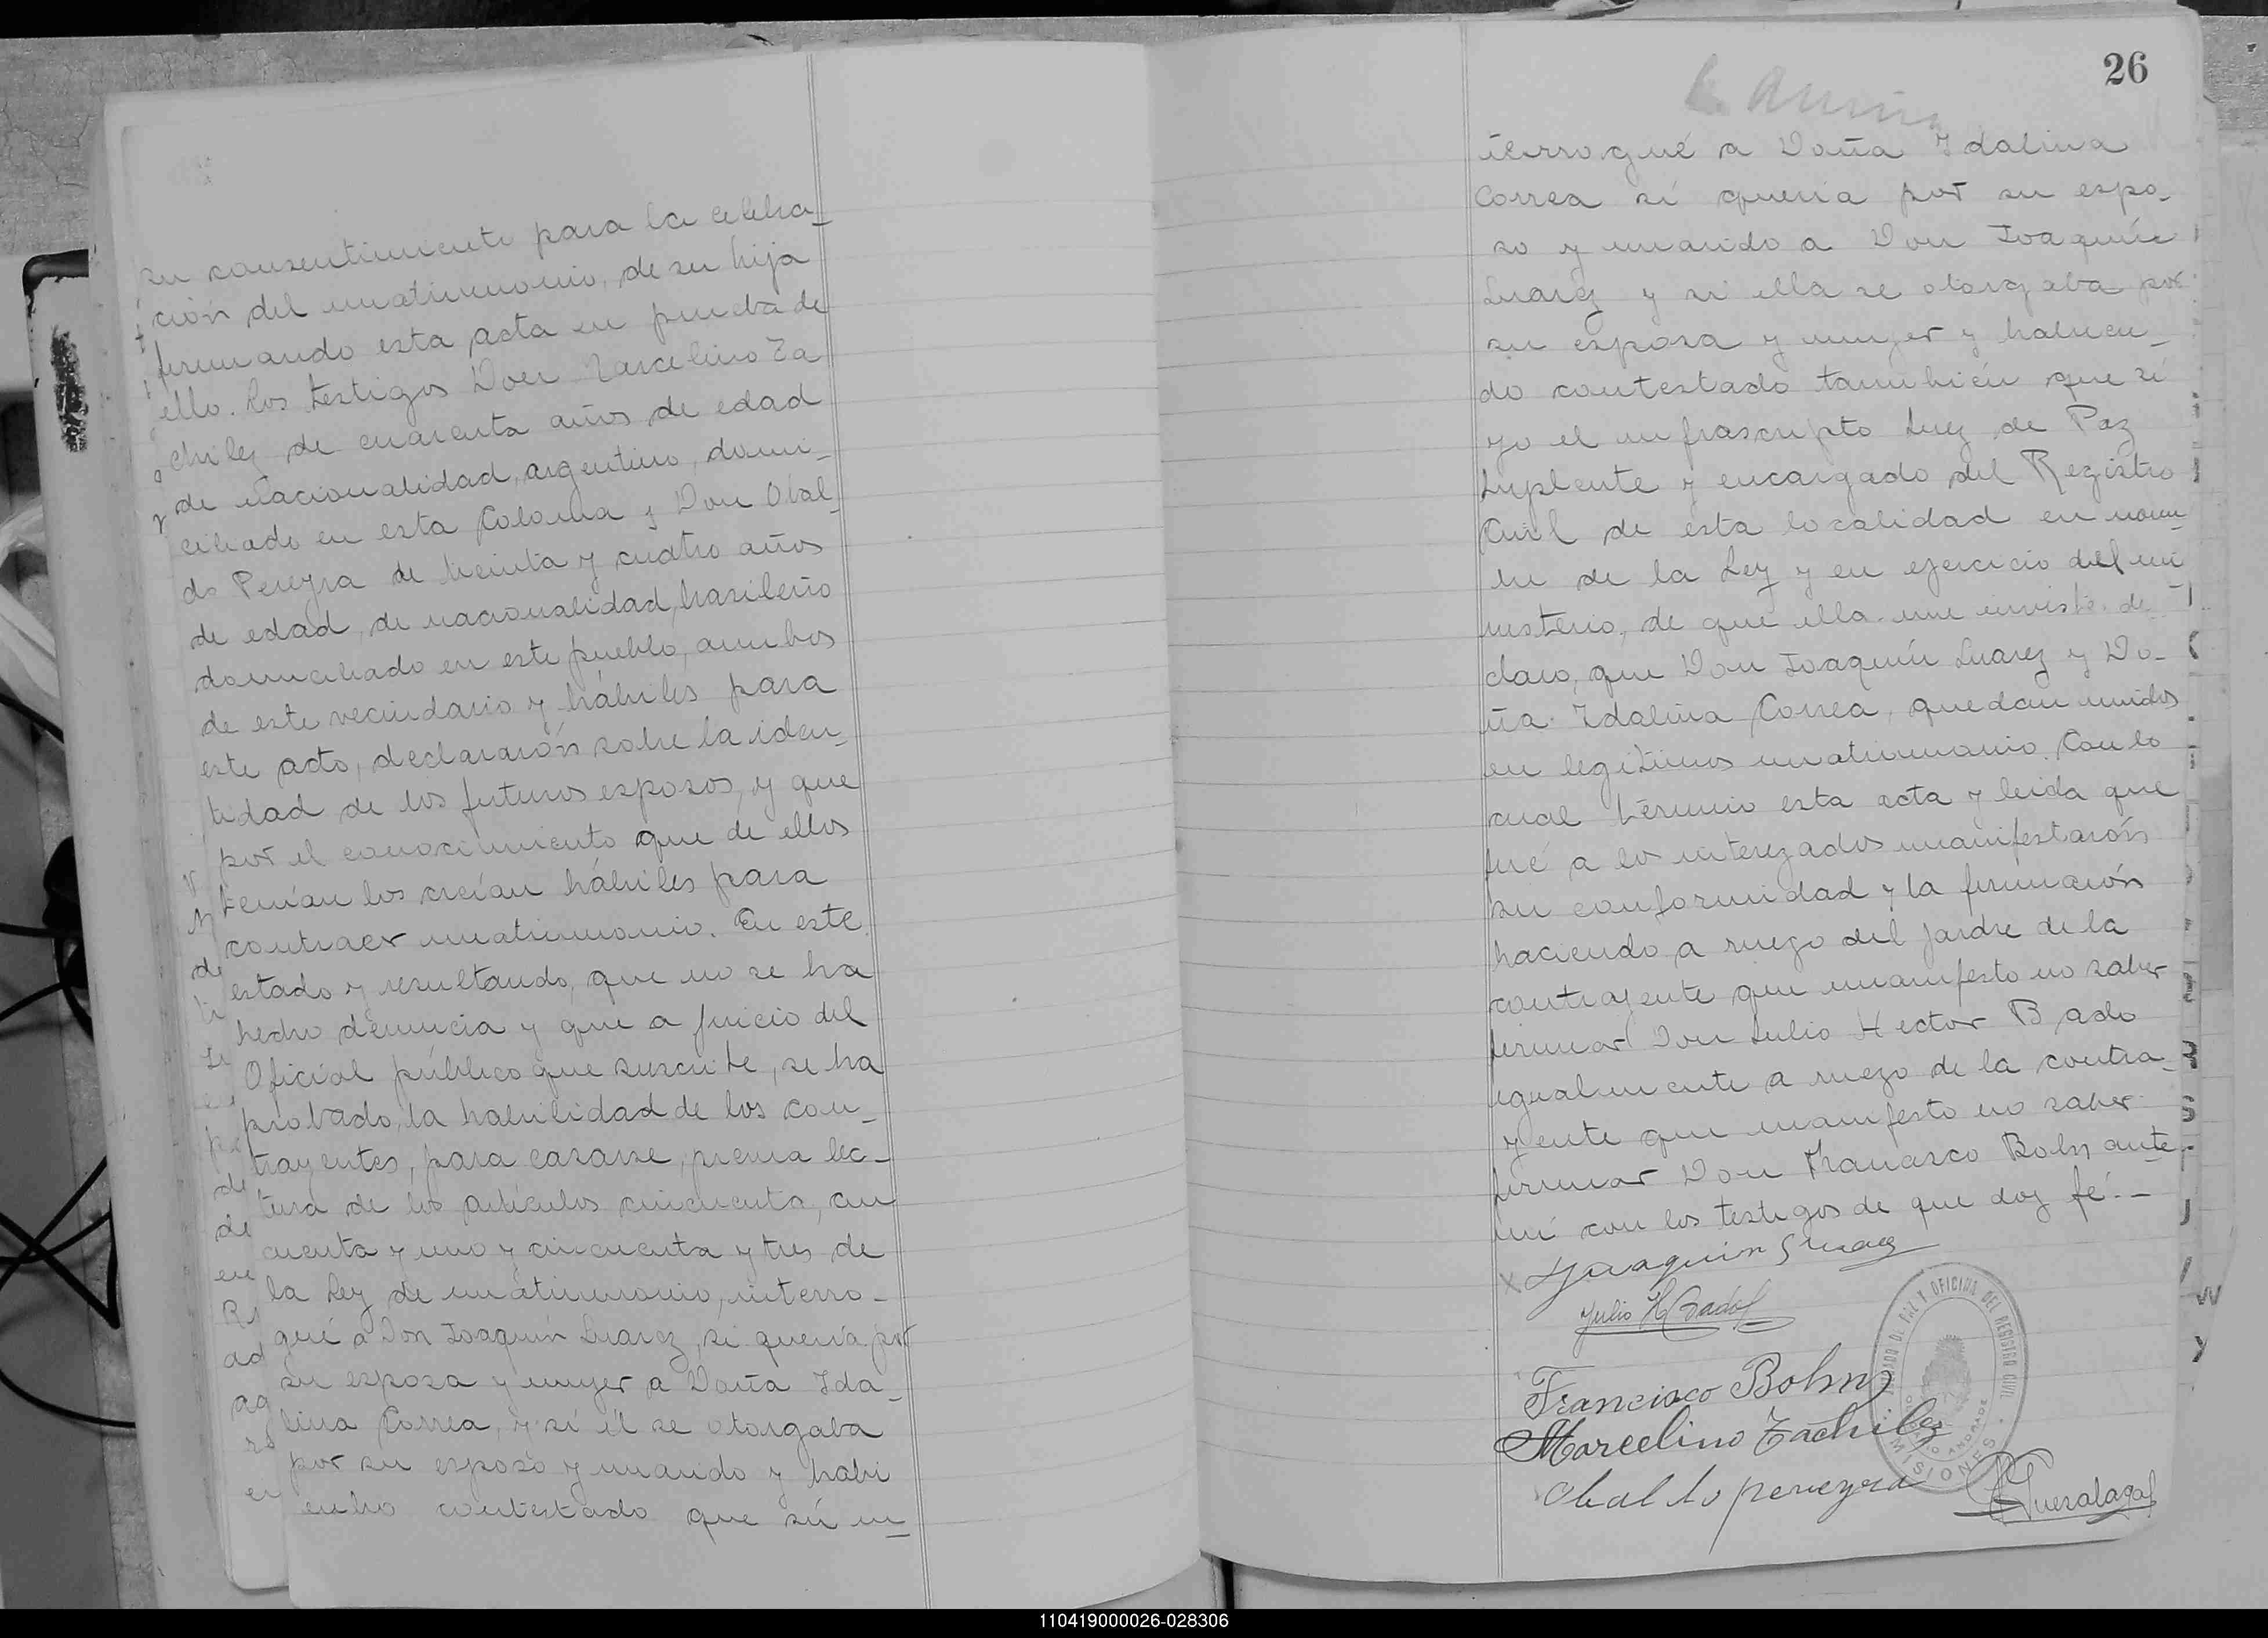 su consentimiento para la celebra_
ción del matrimonio, de su hija
firmando esta acta en prueba de
ello. Los testigos Don Marcelino Za
chilez de cuarenta años de edad
de nacionalidad, argentino, domi_
ciliado en esta Colonia y Don Obal_
do Pereyra de treinta y cuatro años
de edad, de nacionalidad, brasileño
domiciliado en este pueblo, ambos
de este vecindario y hábiles para
este acto, declararón sobre la iden_
tidad de los futuros esposos, y que
por el conocimiento que de ellos
tenían los creían hábiles para
contraer matrimonio. En este
estado y resultando, que no se ha
hecho denuncia y que a juicio del
Oficial público que suscribe, se ha
probado, la habilidad de los con_
trayentes, para casarse, previa lec_
tura de los artículos cincuenta, cin
cuenta y uno y cincuenta y tres de
la Ley de matrimonio, interro_
gué a Don Joaquín Suarez, si quería por
su esposa y mujer a Doña Ida_
lina Correa, y si él se otorgaba
por su esposo y marido y habi
endo contestado que sí in_
26
terrogué a Doña Idalina
Correa si queria por su espo_
so y marido a Don Joaquín
Suarez y si ella se otorgaba por
su esposa y mujer y habien_
do contestado también que si
yo el infrascripto Juez de Paz
Suplente y encargado del Registro
Civil de esta localidad en nom_
bre de la Ley y en ejercicio del mi
nisterio, de que ella me inviste de_
claro, que Don Joaquín Suarez y Do_
ña Idalina Correa, quedan unidos
en legitimos matrimonio. Con lo
cual término esta acta y leida que
fué a los interezados manifestarón
su conformidad y la firmarón
haciendo a ruego del pardre de la
contrajente que manifesto no saber
firmar Don Julio Hector Bado
igualmente a ruego de la contra_
yente que manifesto no saber
firmar Don Francisco Bohn ante
mi con los testigos de que doy fé._
X Joaquin Suarez
Julio H Bado
Francisco Bohn
Marcelino Zachilez
Obaldo pereyra
JUZGADO DE PAZ Y OFICINA DEL REGISTRO CIVIL
ANDRADE
MISIONES
110419000026-028306